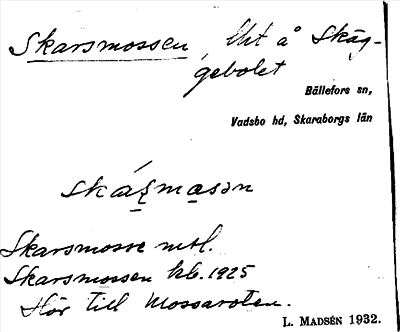 Skarsmossen, Uht å Skäg-
gebolet
Bällefors sn,
Vadsbo hd, Skaraborgs län
skáʂmɑsən
Skarsmosse mtl.
Skarsmossen kb. 1925
Hör till Mossaroten.
L. MADSÉN 1932.